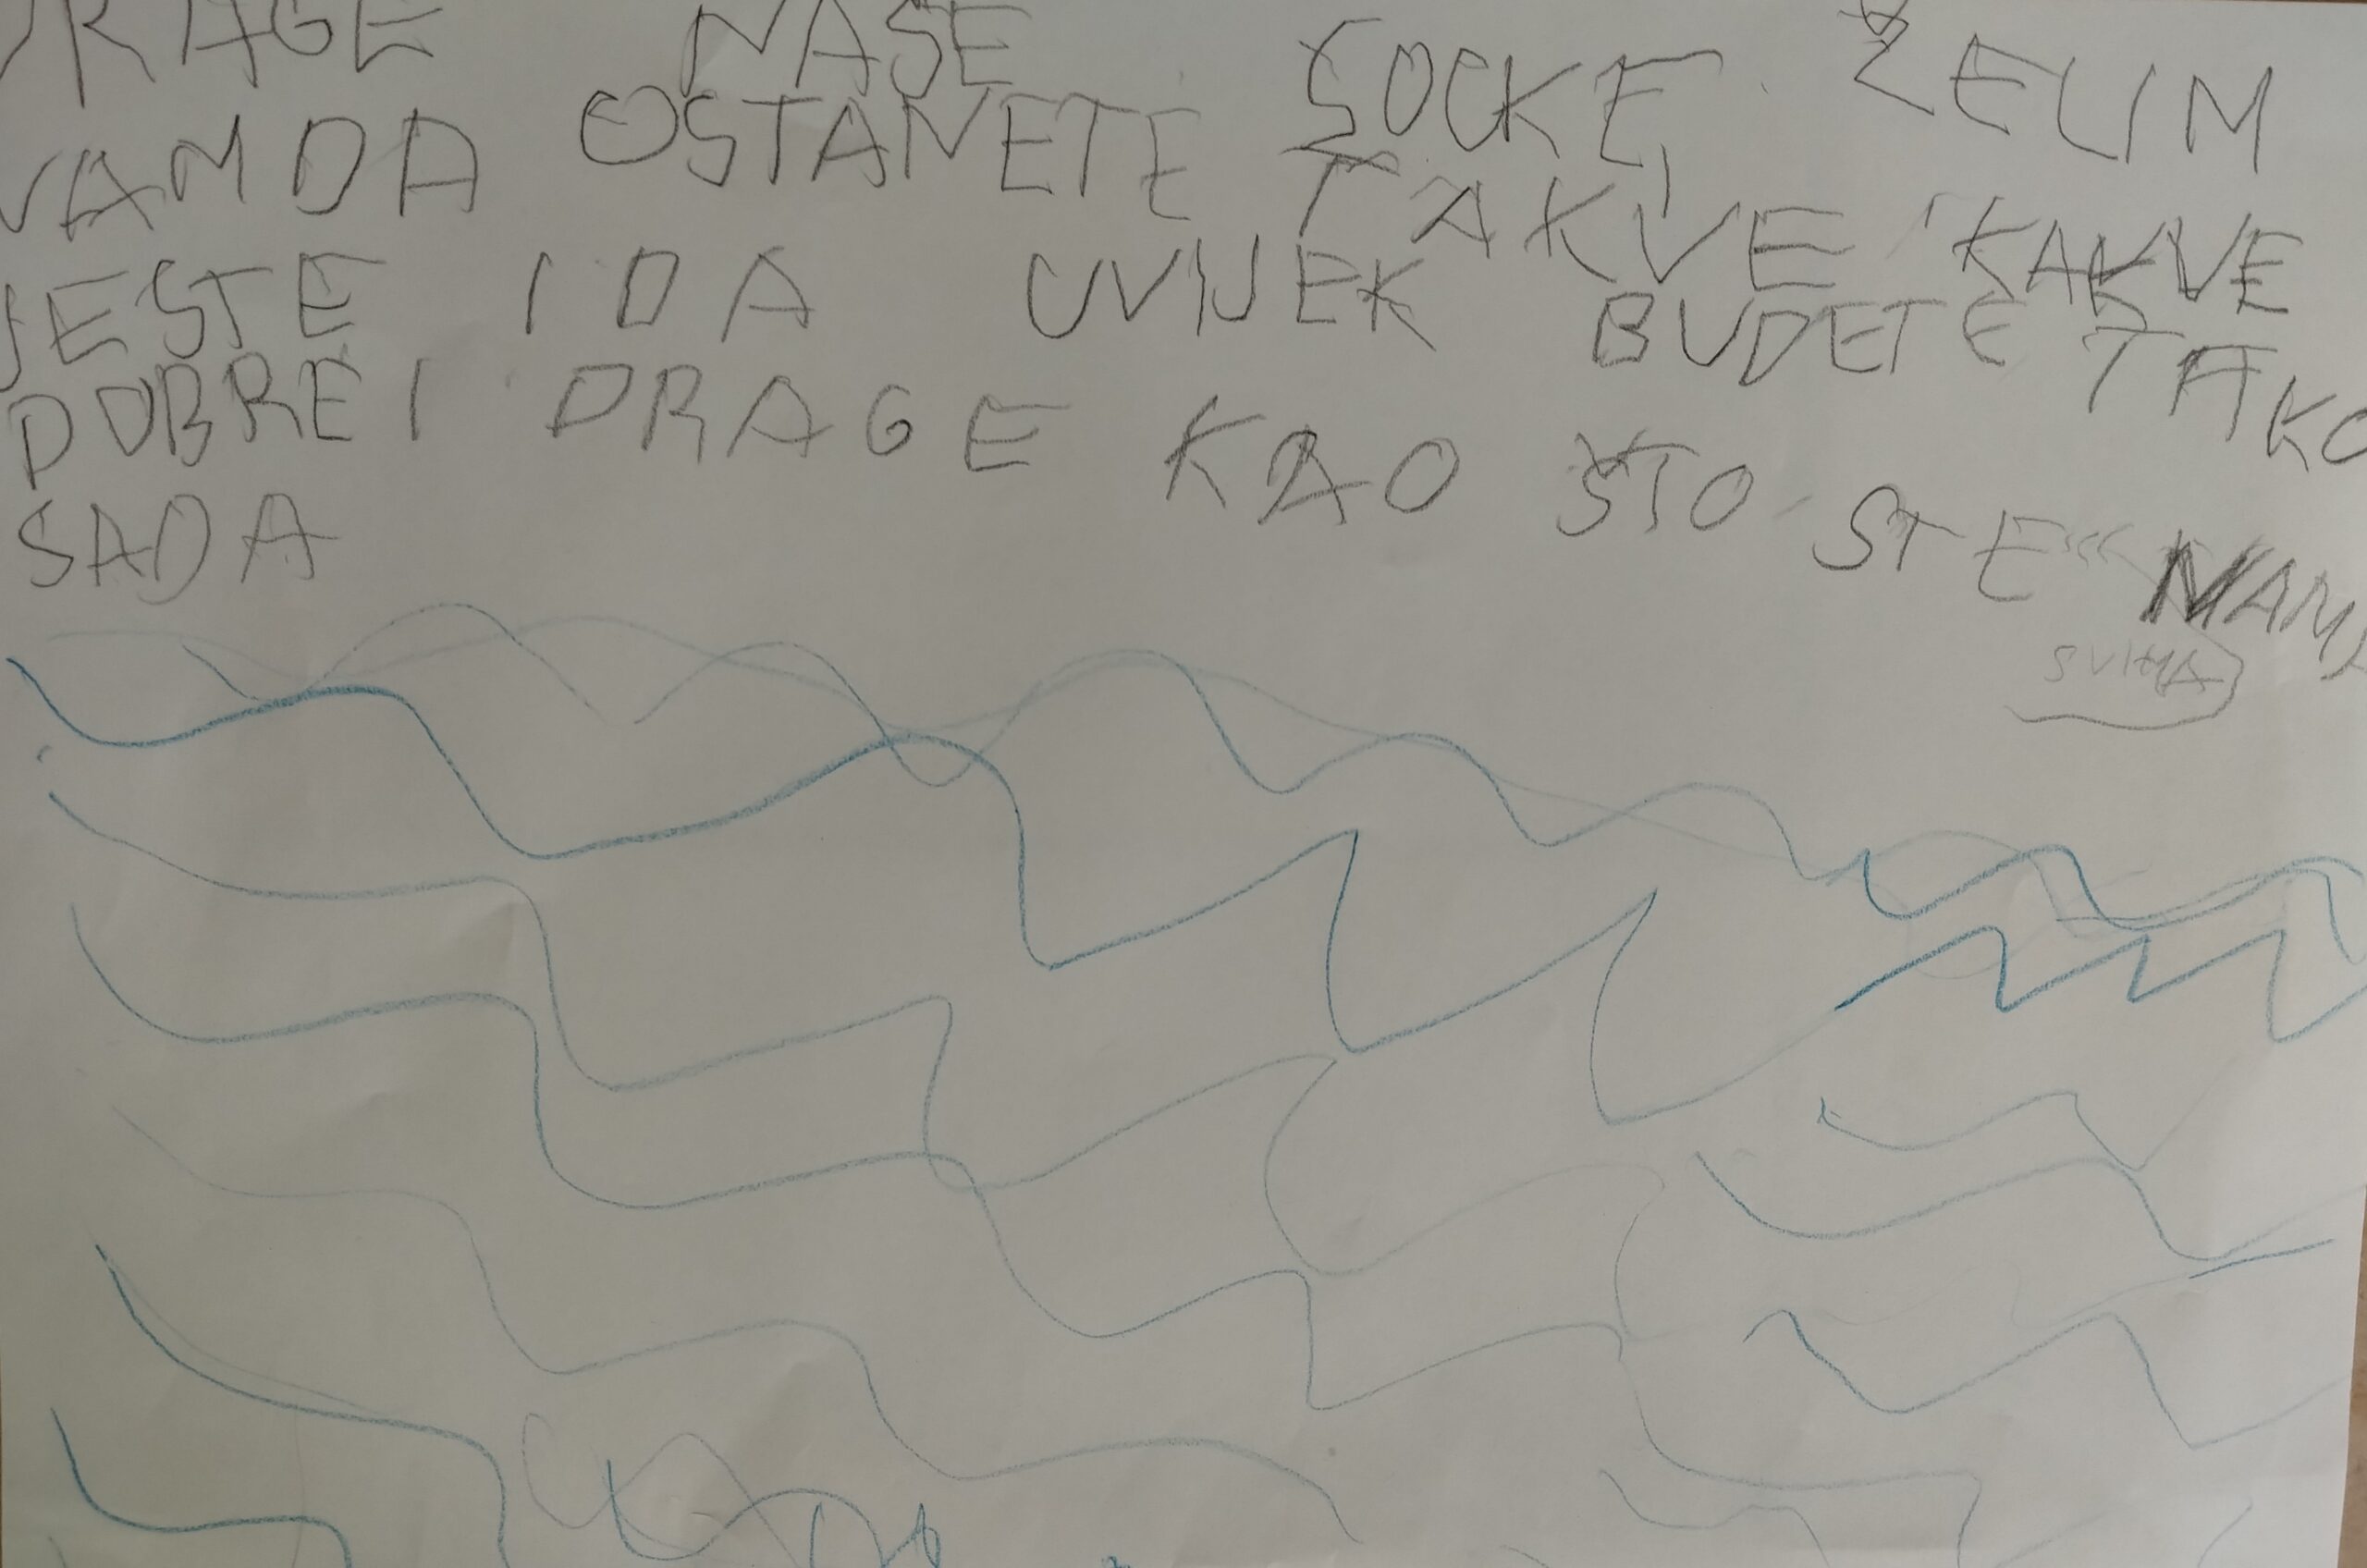 DRAGE NAŠE SOCKE, ŽELIM
VAM DA OSTANETE TAKVE KAKVE
JESTE I DA UVIJEK BUDETE TAKO
DOBRE I DRAGE KAO ŠTO STE NAMA
SVIMA
SADA